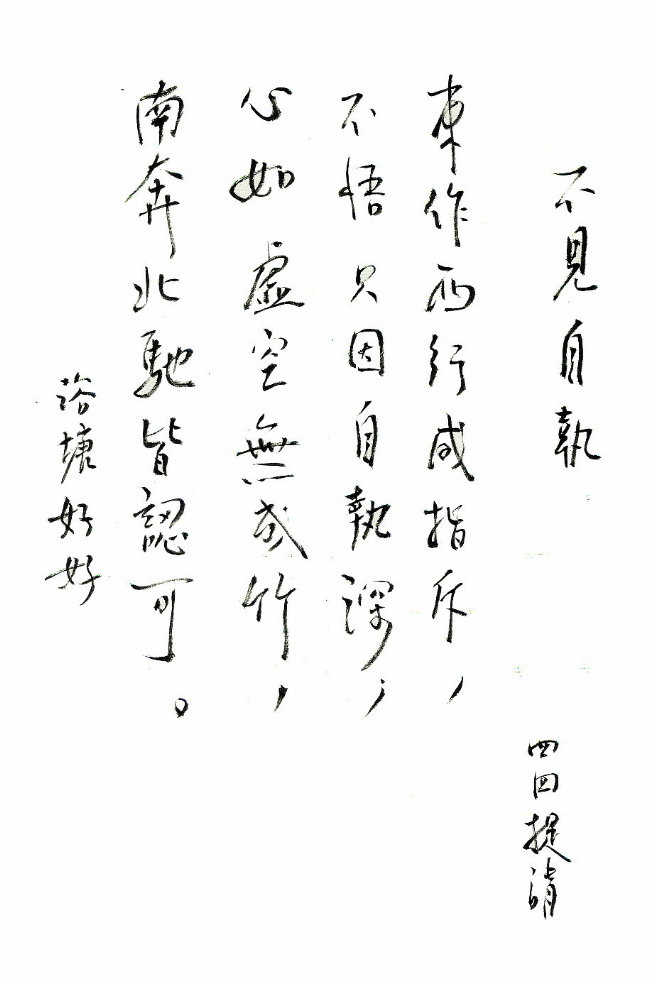 不見自執
四四提清
東作西行咸指斥，
不悟只因自執深，
心如虛空無或竹，
南奔北馳皆認可。
塘好好